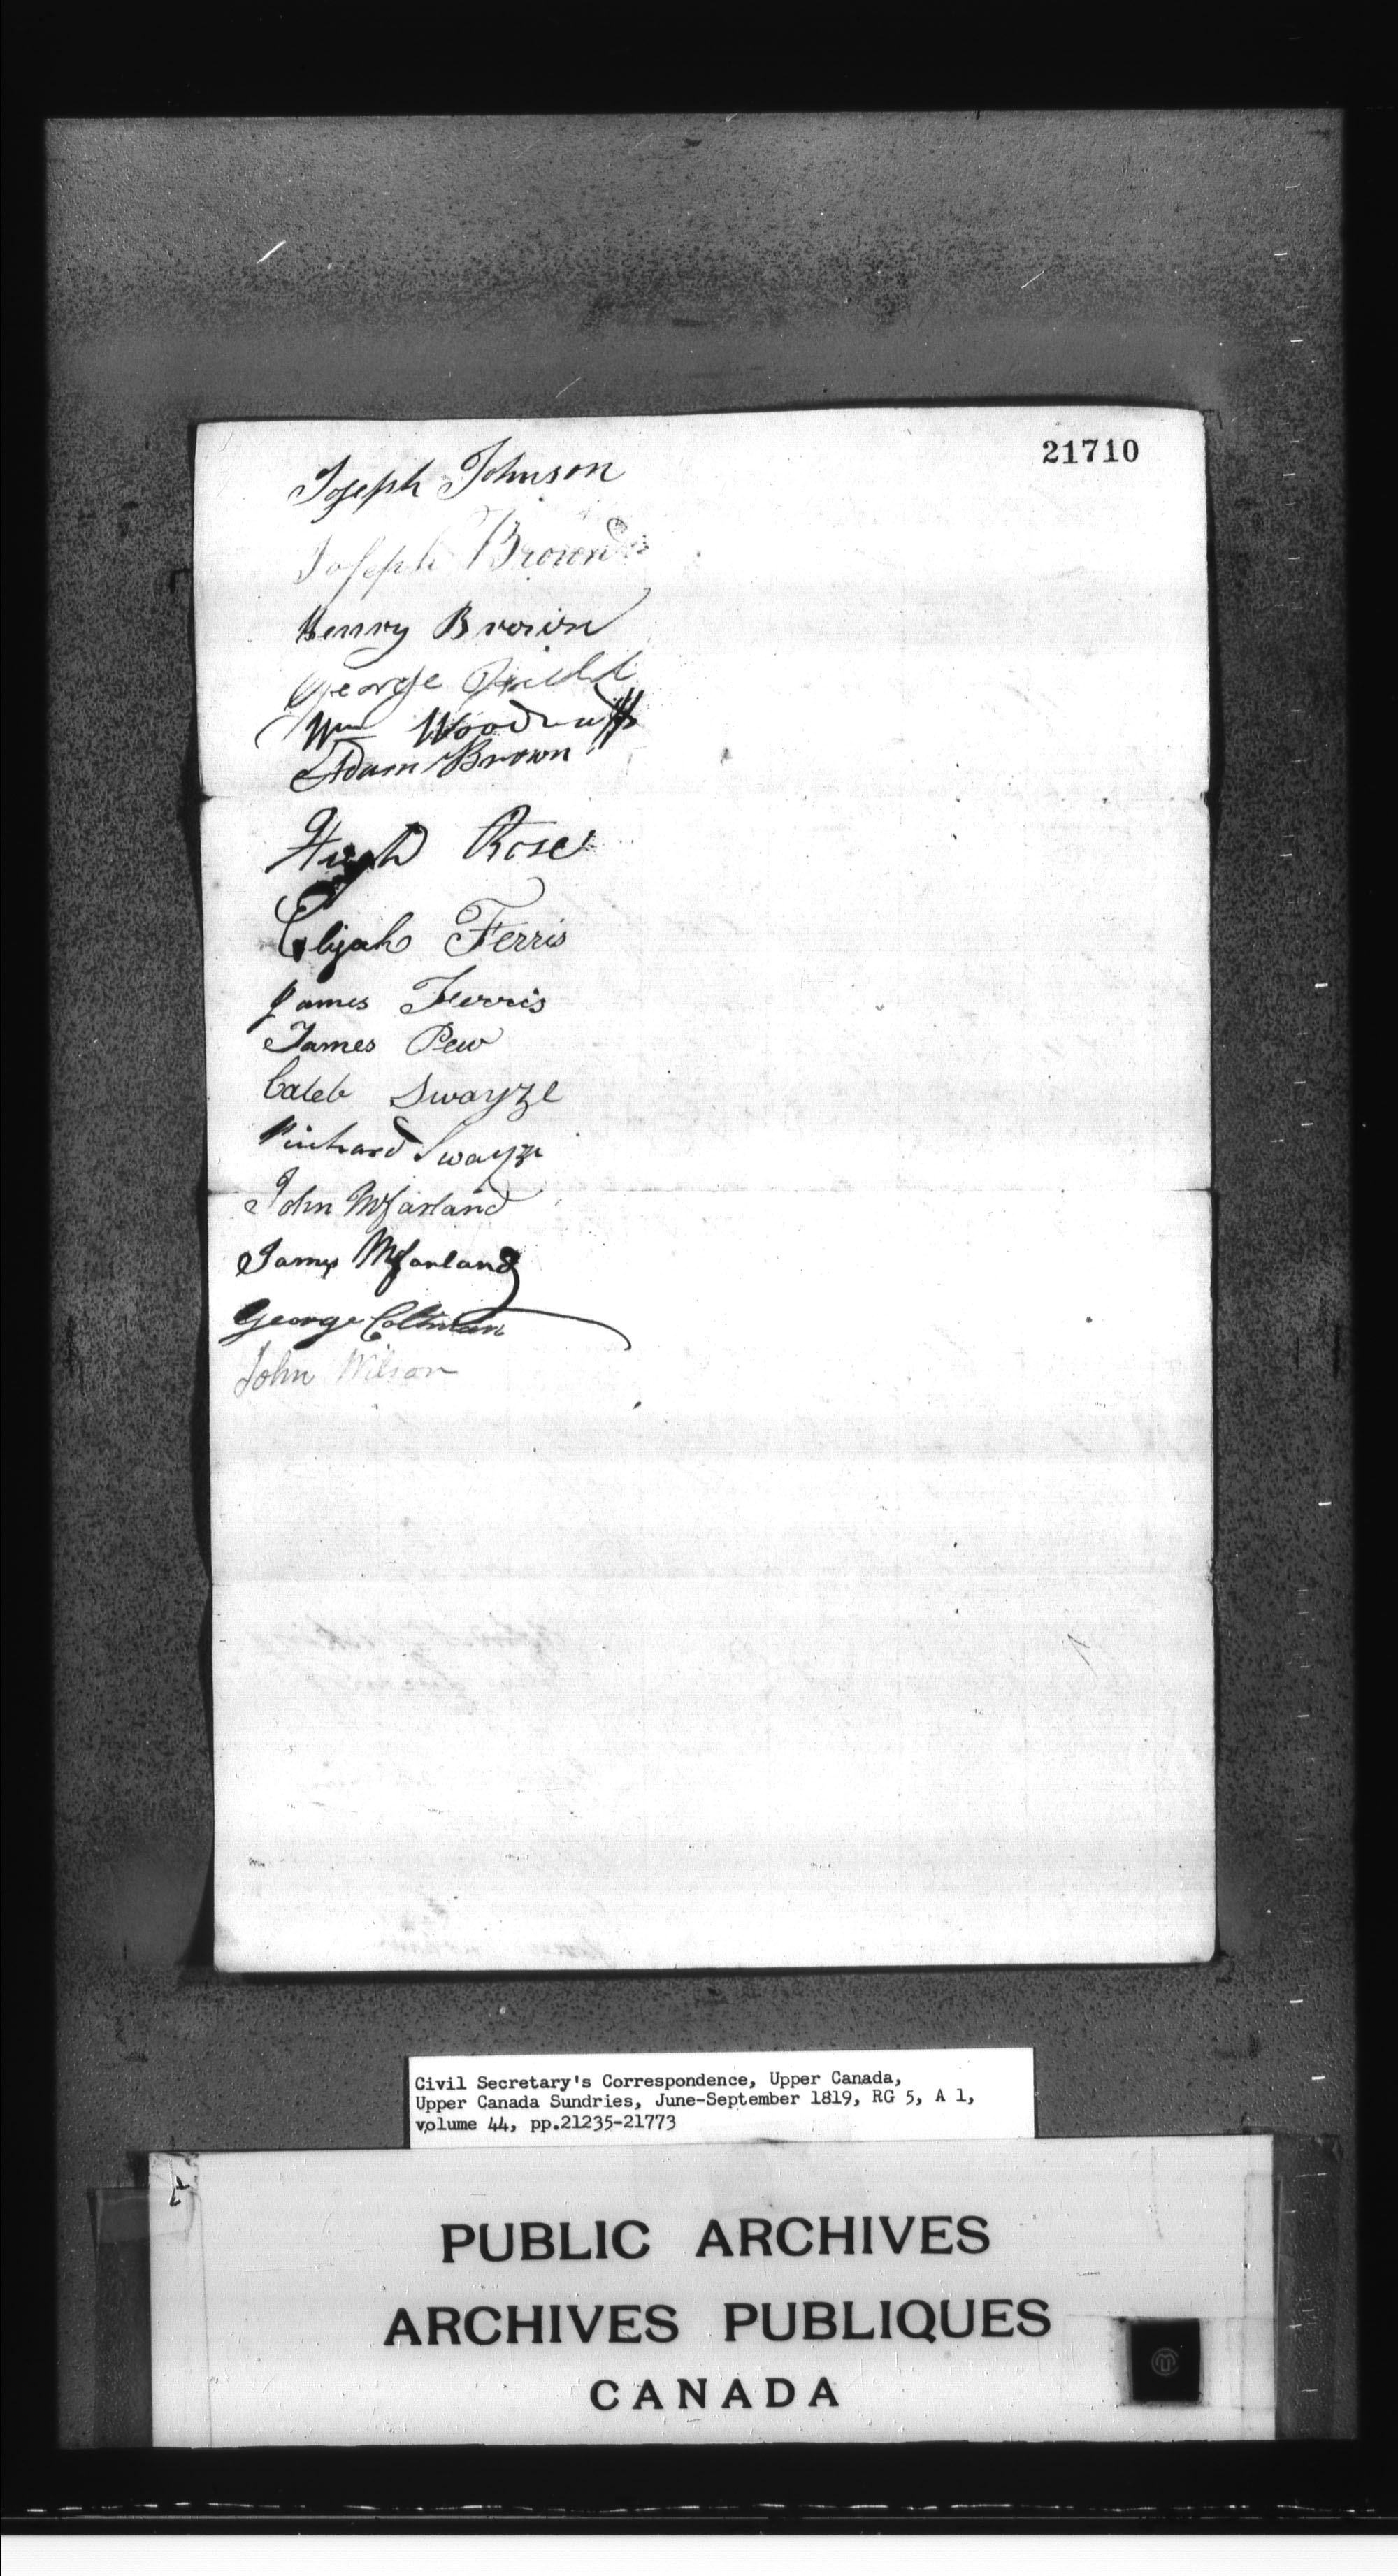 21710
Joseph Johnson
Joseph Brown
Henry Brown
George Field
Wm Woodruff
Adam Brown
Hugh Rose
Elijah Ferris
James Ferris
James Pew
Caleb Swayze
Richard Swayze
John Mcfarland
James Mcfarland
George Coltman
John Wilson
Civil Secretary's Correspondence, Upper Canada,
Upper Canada Sundries, June-September 1819, RG 5, A 1,
volume 44, pp.21235-21773
PUBLIC ARCHIVES
ARCHIVES PUBLIQUES
CANADA